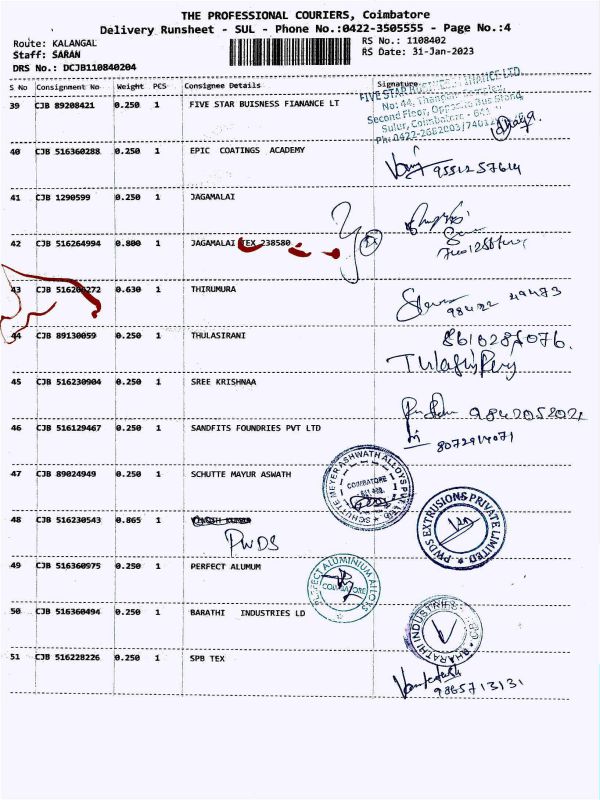 THE PROFESSIONAL COURIERS, Coimbatore
Delivery Runsheet - SUL - Phone No.:0422-3505555 - Page No.:4
Route: KALANGAL
RS No.: 1108402
Staff: SARAN
RS Date: 31-Jan-2023
DRS No.: DCJB110840204
S No Consignment No Weight PCS Consignee Details Signature
39 CJB 89208421 0.250 1 FIVE STAR BUISNESS FIANANCE LT
FIVE STAR BUSINESS FINANCE LTD
No: 44, Complex,
Second Floor, Opposite Bus Stand,
Sulur, Coimbatore - 641
Ph: 0422-2682003
40 CJB 516360288 0.250 1 EPIC COATINGS ACADEMY
9551257614
41 CJB 1290599 0.250 1 JAGAMALAI
42 CJB 516264994 0.800 1 JAGAMALAI TEX 238580
43 CJB 516208272 0.630 1 THIRUMURA
98422 49473
44 CJB 89130059 0.250 1 THULASIRANI
45 CJB 516230904 0.250 1 SREE KRISHNAA
46 CJB 516129467 0.250 1 SANDFITS FOUNDRIES PVT LTD
8072914071
47 CJB 89024949 0.250 1 SCHUTTE MAYUR ASWATH
SCHUTTE MEYER ASHWATH ALLOYS PVT LTD
COIMBATORE
48 CJB 516230543 0.865 1
PWDS
PWDS EXTRUSIONS PRIVATE LIMITED
49 CJB 516360975 0.250 1 PERFECT ALUMUM
PERFECT ALUMINIUM ALLOYS
COIMBATORE
50 CJB 516360494 0.250 1 BARATHI INDUSTRIES LD
BHARATHI INDUSTRIES
51 CJB 516228226 0.250 1 SPB TEX
9865713131